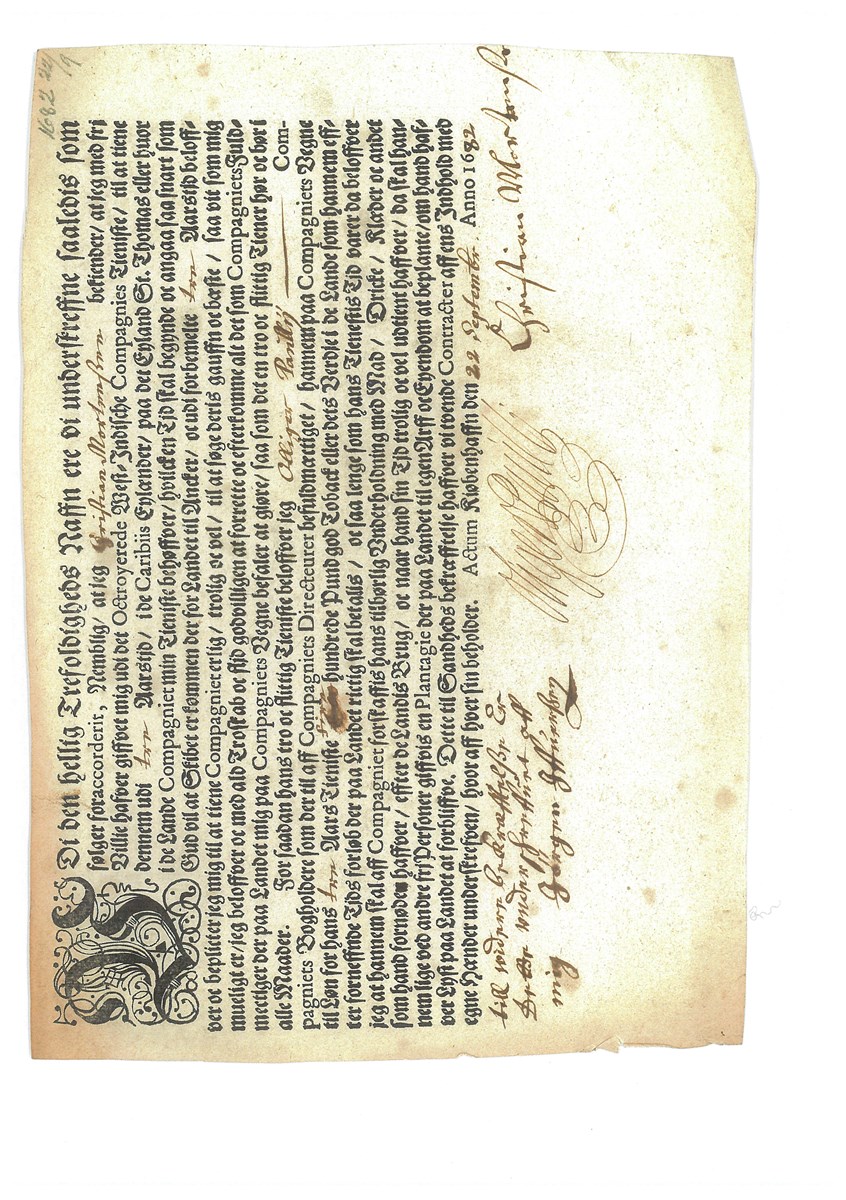 1682 22/9
Di den hellig Trefoldigheds Naffn ere vi underskreffne saaledis som
følger foraccorderit, Nemblig/ at jeg Christian Mortensen bekiender/ at jeg med frj
Villie hafver giffvet mig udi det Octroyerede West-Indische Compagnies Tieniste/ til at tiene
dennem udi tre Aarstid/ i de Caribiis Eylænder/ paa det Eyland St. Thomas eller huor
i de Lande Compagniet min Tieniste behøffver/ hvilcken Tjd skal begynde oc angaa saa snart som
Gud vil at Skibet er kommen der for Landet til Ancker/ oc udi forbemelte tre Aarstid beloff-
ver oc beplicter jeg mig til at tiene Compagniet erlig/ trolig oc vel/ til at søge deris gauffn oc bæste/ saa vit som mig
mueligt er/ jeg beloffver oc med ald Troskab oc flid godvilligen at forrette oc efterkomme alt det som Compagniets Fuld-
mectiger der paa Landet mig paa Compagniets Vegne befaler at giøre/ saa som det en tro oc flittig Tiener hør oc bør i
alle Maader. For saadan hans tro oc flittig Tieniste beloffver jeg Olliger Paullij Com-
pagniets Bogholdere som der til aff Compagniets Directeurer befuldmæctiget/ hannem paa Compagniets Vegne
til Løn for hans tre Aars Tieniste hundrede Pund god Toback eller dets Verdie i de Lande som hannem eff-
ter forneffnde Tjds forløb der paa Landet rictig skal betalis/ oc saa lenge som hans Tienestis Tid varer da beloffver
jeg at hannem skal aff Compagniet forskaffis hans tilbørlig Underholdning med Mad/ Dricke/ Klæder oc andet
som hand fornøden haffver/ effter de Landis Brug/ oc naar hand sin Tjd trolig oc vel udtient haffver/ da skal han-
nem lige ved andre frj Personer giffvis en Plantagie der paa Landet til egen Arff oc Eyendom at beplante/ om hand haf-
ver Lyst paa Landet at forbliffve. Dette til Sandheds bekræfftelse haffver vi tvende Contracter aff ens Indhold med
egne Hænder underskrefven/ hvor aff hver sin beholder. Actum Kiøbenhaffn den 22 Septembr. Anno 1682
till widere bekrafftelse Er
Dette under
mig Jørgen
Christian Mortensen